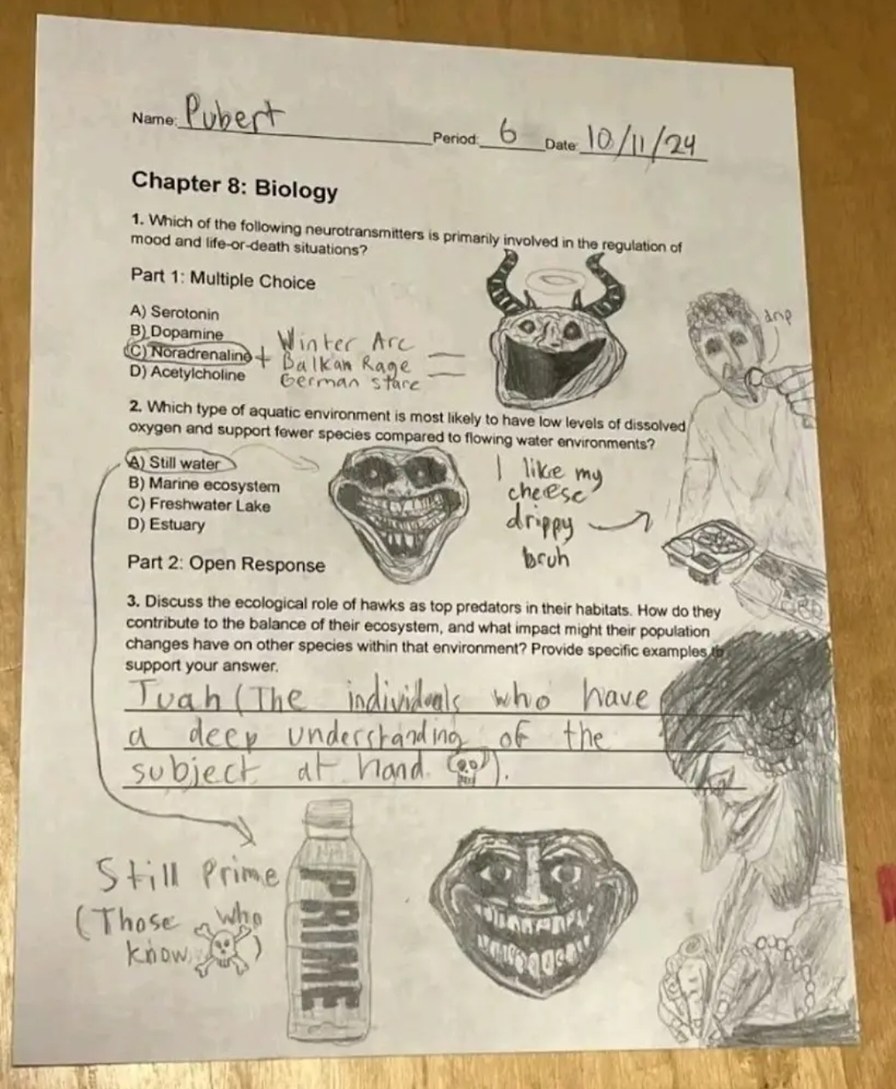 Name: Pubert
Period: 6 Date: 10/11/24
Chapter 8: Biology
1. Which of the following neurotransmitters is primarily involved in the regulation of
mood and life-or-death situations?
Part 1: Multiple Choice
A) Serotonin
B) Dopamine
C) Noradrenaline + Winter Arc
Balkan Rage =
German stare
D) Acetylcholine
drip
2. Which type of aquatic environment is most likely to have low levels of dissolved
oxygen and support fewer species compared to flowing water environments?
A) Still water
B) Marine ecosystem
C) Freshwater Lake
D) Estuary
I like my
cheese
drippy
bruh
Part 2: Open Response
3. Discuss the ecological role of hawks as top predators in their habitats. How do they
contribute to the balance of their ecosystem, and what impact might their population
changes have on other species within that environment? Provide specific examples to
support your answer.
Tuah (The individuals who have
a deep understanding of the
subject at hand ).
Still Prime
(Those who
know )
PRIME